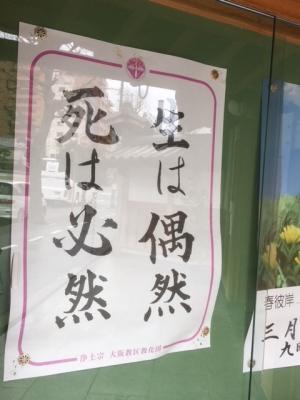 生は偶然
死は必然
浄土宗 大阪教区教化団
春彼岸
三月